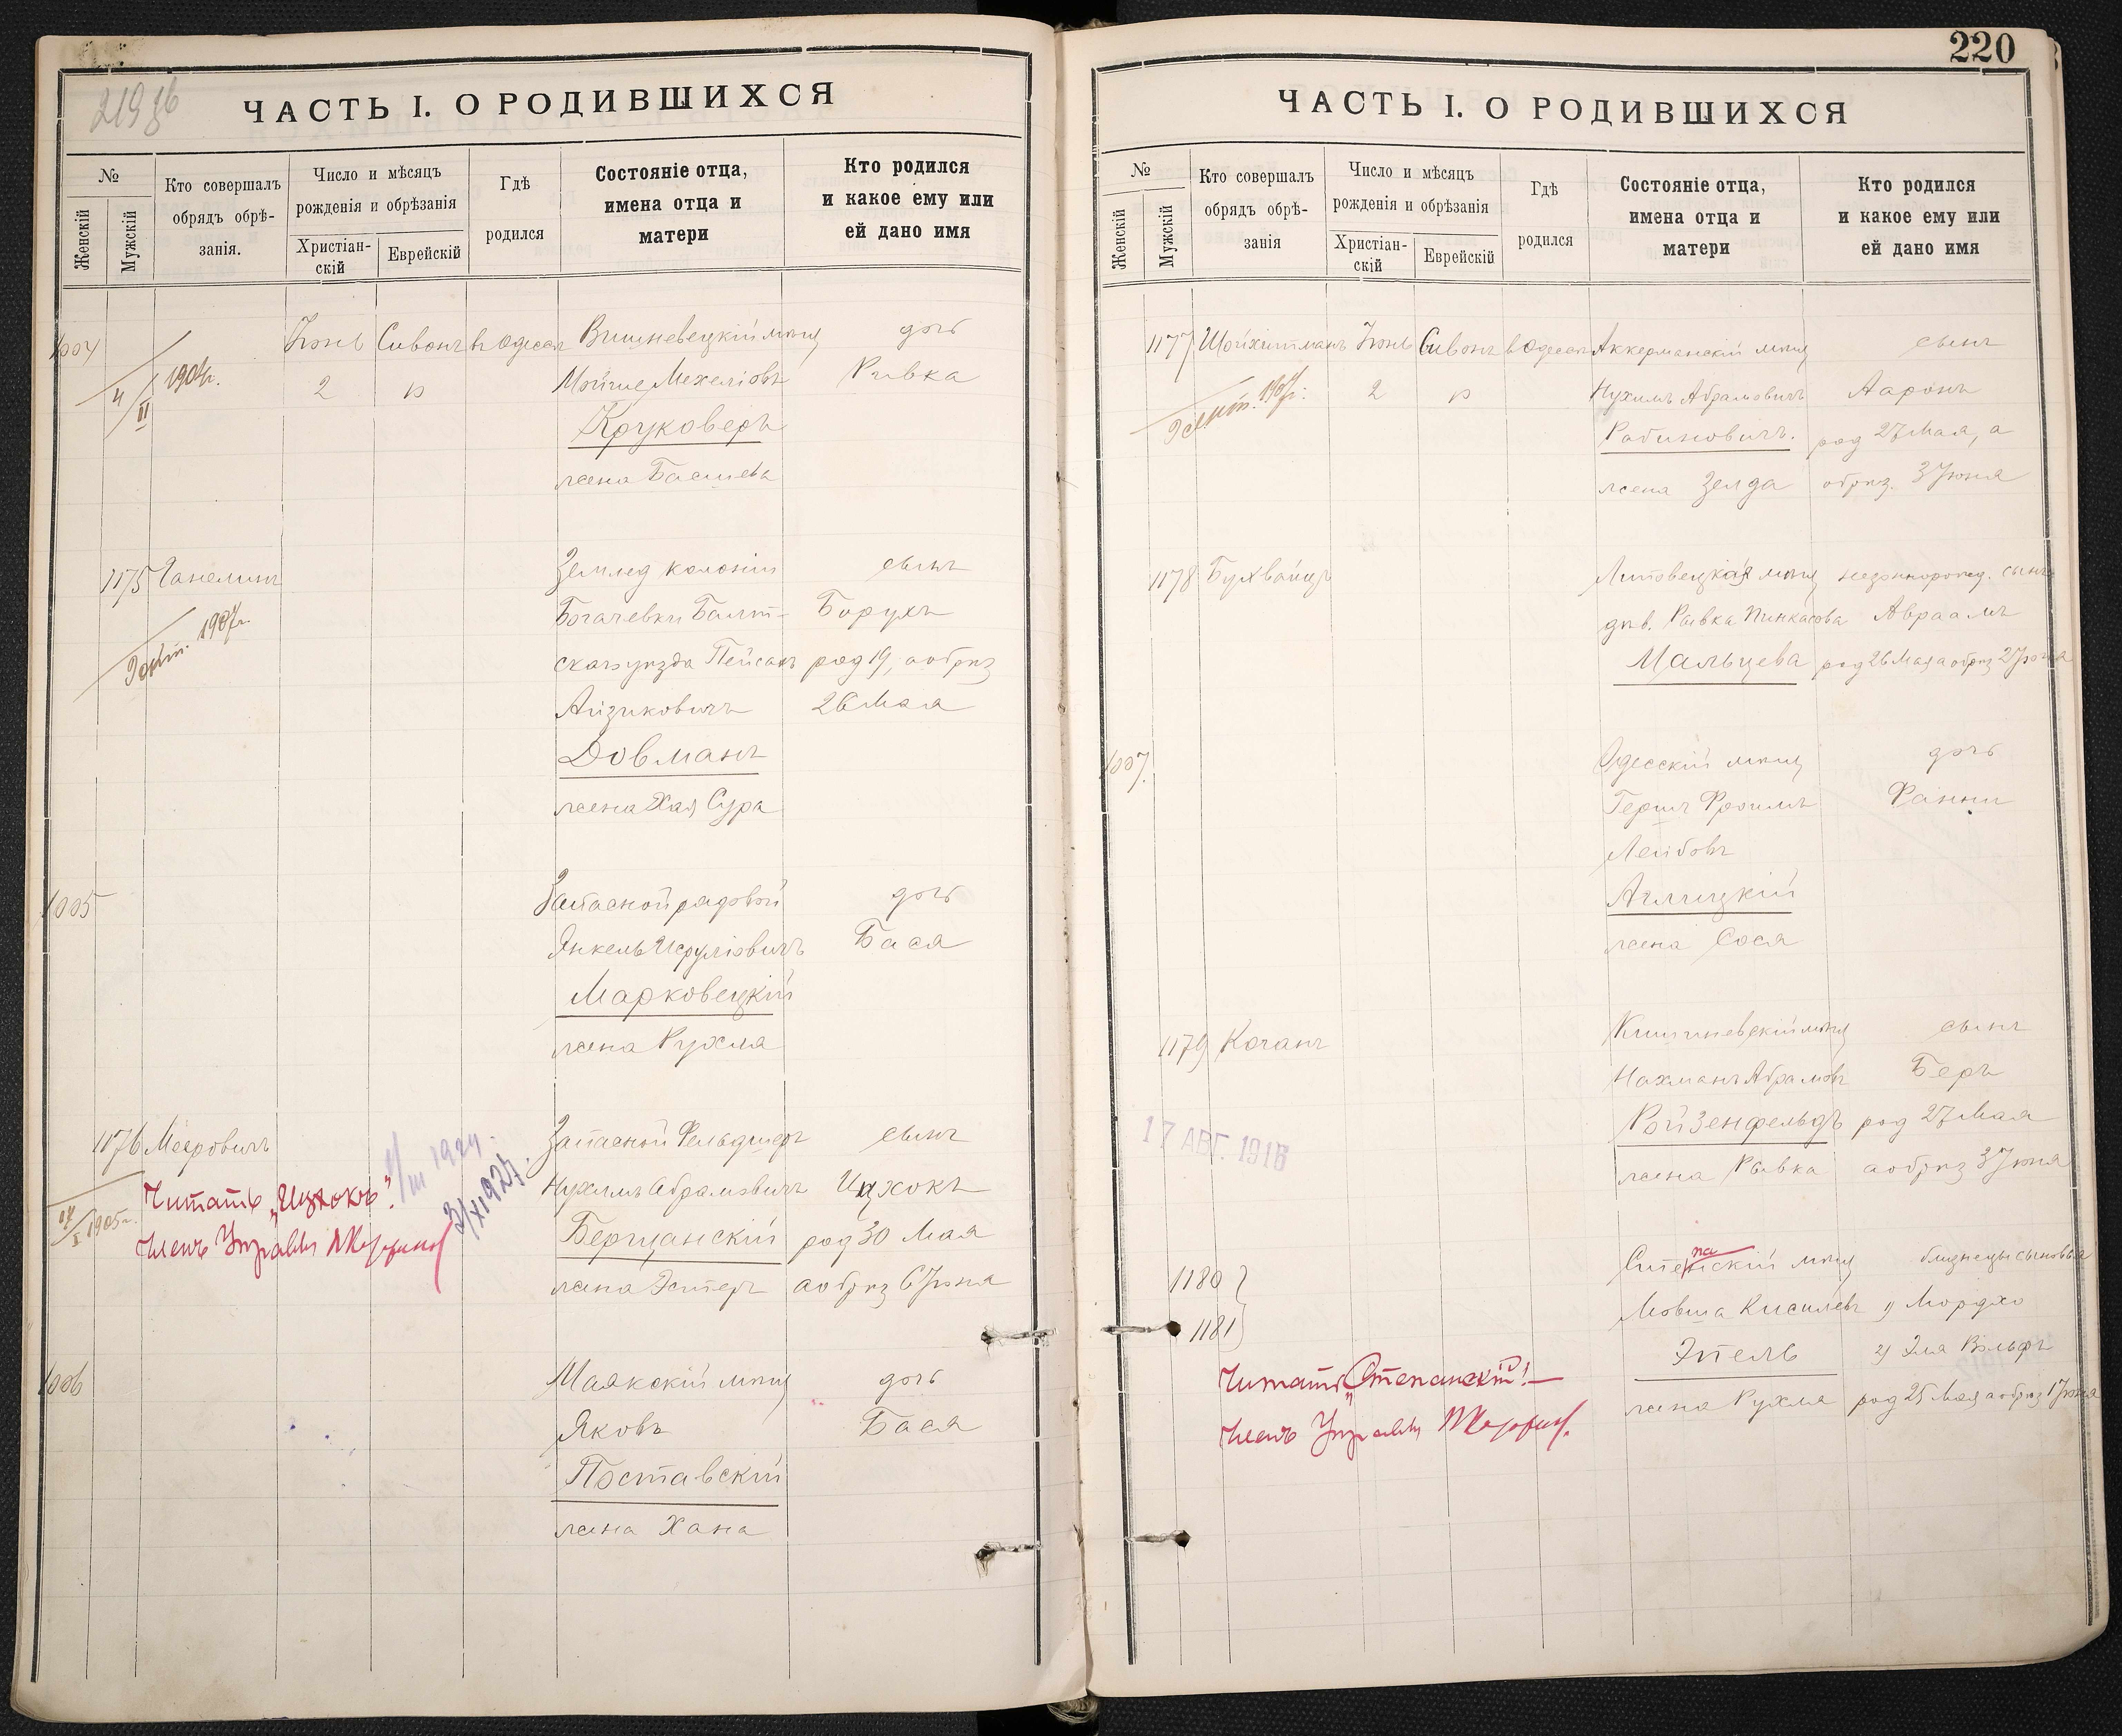 219 об
ЧАСТЬ I. О РОДИВШИХСЯ
№
Женскій
Мужскій
Кто совершалъ
обрядъ обрѣ-
занія.
Число и мѣсяцъ
рожденія и обрѣзанія
Христіан-
скій
Еврейскій
Гдѣ
родился
Состояніе отца,
имена отца и
матери
Кто родился
и какое ему или
ей дано имя
1004
4/II 1904г.
Іюнь Сивонъ в Одессѣ
2
Вишневецкій мѣщ
Мойше Мехеліовъ
Круковеръ
жена Басшева
дочь
Ривка
1175 Ганелинъ
1907г.
Землед колоніи
Богачевки Балт-
скаго уѣзда Пейсахъ
Айзиковичъ
Довманъ
жена Хая Сура
сынъ
Борухъ
род 19, а обрѣз
26 Мая
1005
Запасной рядовой
Янкель Исруліовичъ
Марковецкій
жена Рухля
дочь
Бася
1176 Мееровичъ
1905г.
Читать „Ицхокъ“.
Членъ Управы
/III 1924.
3/XI 924.
Запасной Фельдшеръ
Нухимъ Абрамовичъ
Бершанскій
жена Эстеръ
сынъ
Ицхокъ
род 30 Мая
а обрѣз 6 Іюня
1006
Маякскій мѣщ
Яковъ
Поставскій
жена Хана
дочь
Бася
220
ЧАСТЬ I. О РОДИВШИХСЯ
№
Женскій
Мужскій
Кто совершалъ
обрядъ обрѣ-
занія
Число и мѣсяцъ
рожденія и обрѣзанія
Христіан-
скій
Еврейскій
Гдѣ
родился
Состояніе отца,
имена отца и
матери
Кто родился
и какое ему или
ей дано имя
1177 Шойхитманъ Іюнь Сивонъ в Одессѣ
2
1907г.
Аккерманскій мѣщ
Нухимъ Абрамовичъ
Рабиновичъ.
жена Зелда
сынъ
Ааронъ
род 27 Мая, а
обрѣз. 3 Іюня
1178 Бухвайцъ
Липовецкая мѣщ
дѣв. Рывка Пинкасова
Мальцева
незаконорожд. сынъ
Авраамъ
род 26 Мая а обрѣз 2 Іюня
1007.
Одесскій мѣщ
Гершъ Фроимъ
Лейбовъ
жена Сося
дочь
Фанни
1179 Коганъ
Кишиневскій мѣщ
Нахманъ Абрамовъ
Ройзенфельдъ
жена Рывка
сынъ
Беръ
род 27 Мая
а обрѣз 3 Іюня
17 АВГ. 1916
1180
1181
Читать „Степанскій“!
Членъ Управы
па
мѣщ
Мовша Кисилевъ
Эпель
жена Рухля
близнецы сыновья
1) Мордхо
2) Эля Вольфъ
род 25 Мая а обрѣз 1 Іюня